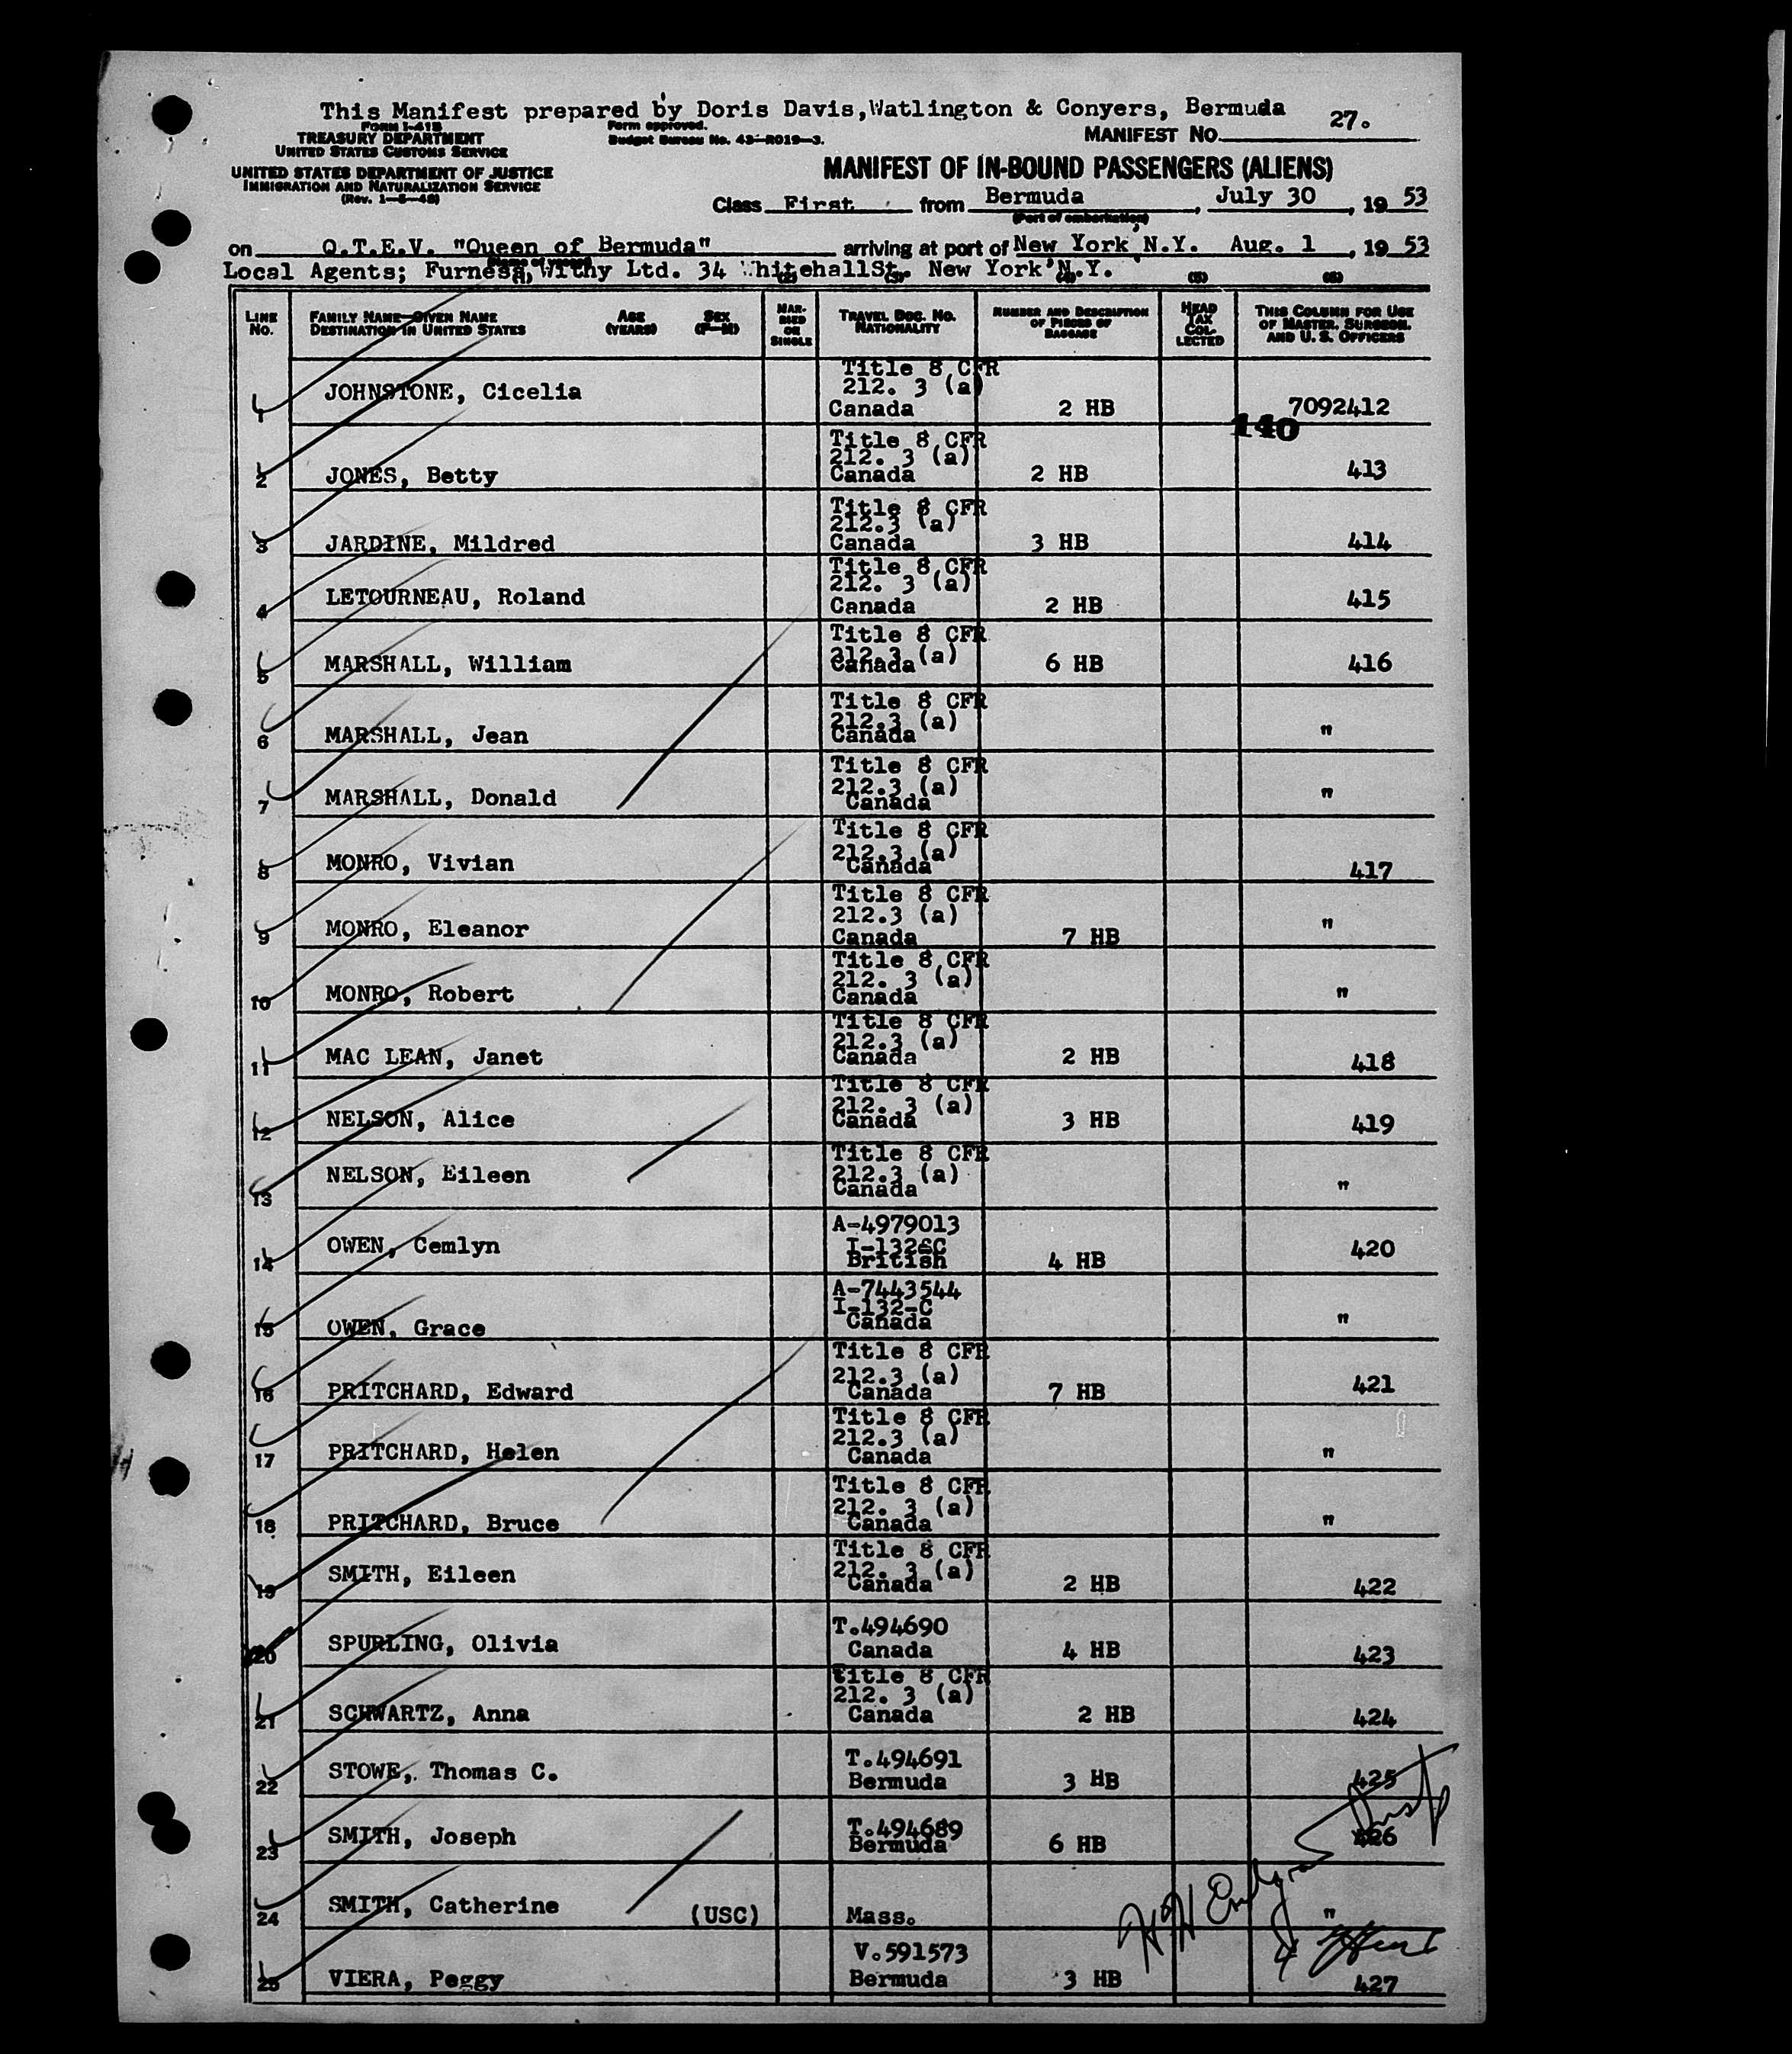 This Manifest prepared by Doris Davis,Watlington & Conyers, Bermuda
FORM I-418
TREASURY DEPARTMENT
UNITED STATES CUSTOMS SERVICE
UNITED STATES DEPARTMENT OF JUSTICE
IMMIGRATION AND NATURALIZATION SERVICE
(Rev. 1-5-48)
Form approved.
Budget Bureau No. 43-R019-3.
MANIFEST NO. 27.
MANIFEST OF IN-BOUND PASSENGERS (ALIENS)
Class First from Bermuda, July 30, 19 53
(Port of embarkation)
on Q.T.E.V. "Queen of Bermuda" arriving at port of New York, N.Y. Aug. 1, 19 53
(Name of vessel)
Local Agents; Furness, Withy Ltd. 34 WhitehallSt. New York N.Y.
(1) (2) (3) (4) (5) (6)
LINE No. FAMILY NAME—GIVEN NAME DESTINATION IN UNITED STATES AGE (YEARS) SEX (F-M) MARRIED OR SINGLE TRAVEL DOC. NO. NATIONALITY NUMBER AND DESCRIPTION OF PIECES OF BAGGAGE HEAD TAX COLLECTED THIS COLUMN FOR USE OF MASTER, SURGEON, AND U. S. OFFICERS
1 JOHNSTONE, Cicelia Title 8 CFR 212. 3 (a) Canada 2 HB 7092412
140
2 JONES, Betty Title 8 CFR 212. 3 (a) Canada 2 HB 413
3 JARDINE, Mildred Title 8 CFR 212.3 (a) Canada 3 HB 414
4 LETOURNEAU, Roland Title 8 CFR 212. 3 (a) Canada 2 HB 415
5 MARSHALL, William Title 8 CFR 212.3 (a) Canada 6 HB 416
6 MARSHALL, Jean Title 8 CFR 212.3 (a) Canada "
7 MARSHALL, Donald Title 8 CFR 212.3 (a) Canada "
8 MONRO, Vivian Title 8 CFR 212.3 (a) Canada 417
9 MONRO, Eleanor Title 8 CFR 212.3 (a) Canada 7 HB "
10 MONRO, Robert Title 8 CFR 212. 3 (a) Canada "
11 MAC LEAN, Janet Title 8 CFR 212.3 (a) Canada 2 HB 418
12 NELSON, Alice Title 8 CFR 212. 3 (a) Canada 3 HB 419
13 NELSON, Eileen Title 8 CFR 212.3 (a) Canada "
14 OWEN, Cemlyn A-4979013 I-132-C British 4 HB 420
15 OWEN, Grace A-7443544 I-132-C Canada "
16 PRITCHARD, Edward Title 8 CFR 212.3 (a) Canada 7 HB 421
17 PRITCHARD, Helen Title 8 CFR 212.3 (a) Canada "
18 PRITCHARD, Bruce Title 8 CFR 212. 3 (a) Canada "
19 SMITH, Eileen Title 8 CFR 212. 3 (a) Canada 2 HB 422
20 SPURLING, Olivia T.494690 Canada 4 HB 423
21 SCHWARTZ, Anna Title 8 CFR 212. 3 (a) Canada 2 HB 424
22 STOWE, Thomas C. T.494691 Bermuda 3 HB 425
23 SMITH, Joseph T.494689 Bermuda 6 HB 426
24 SMITH, Catherine (USC) Mass. "
25 VIERA, Peggy V.591573 Bermuda 3 HB 427